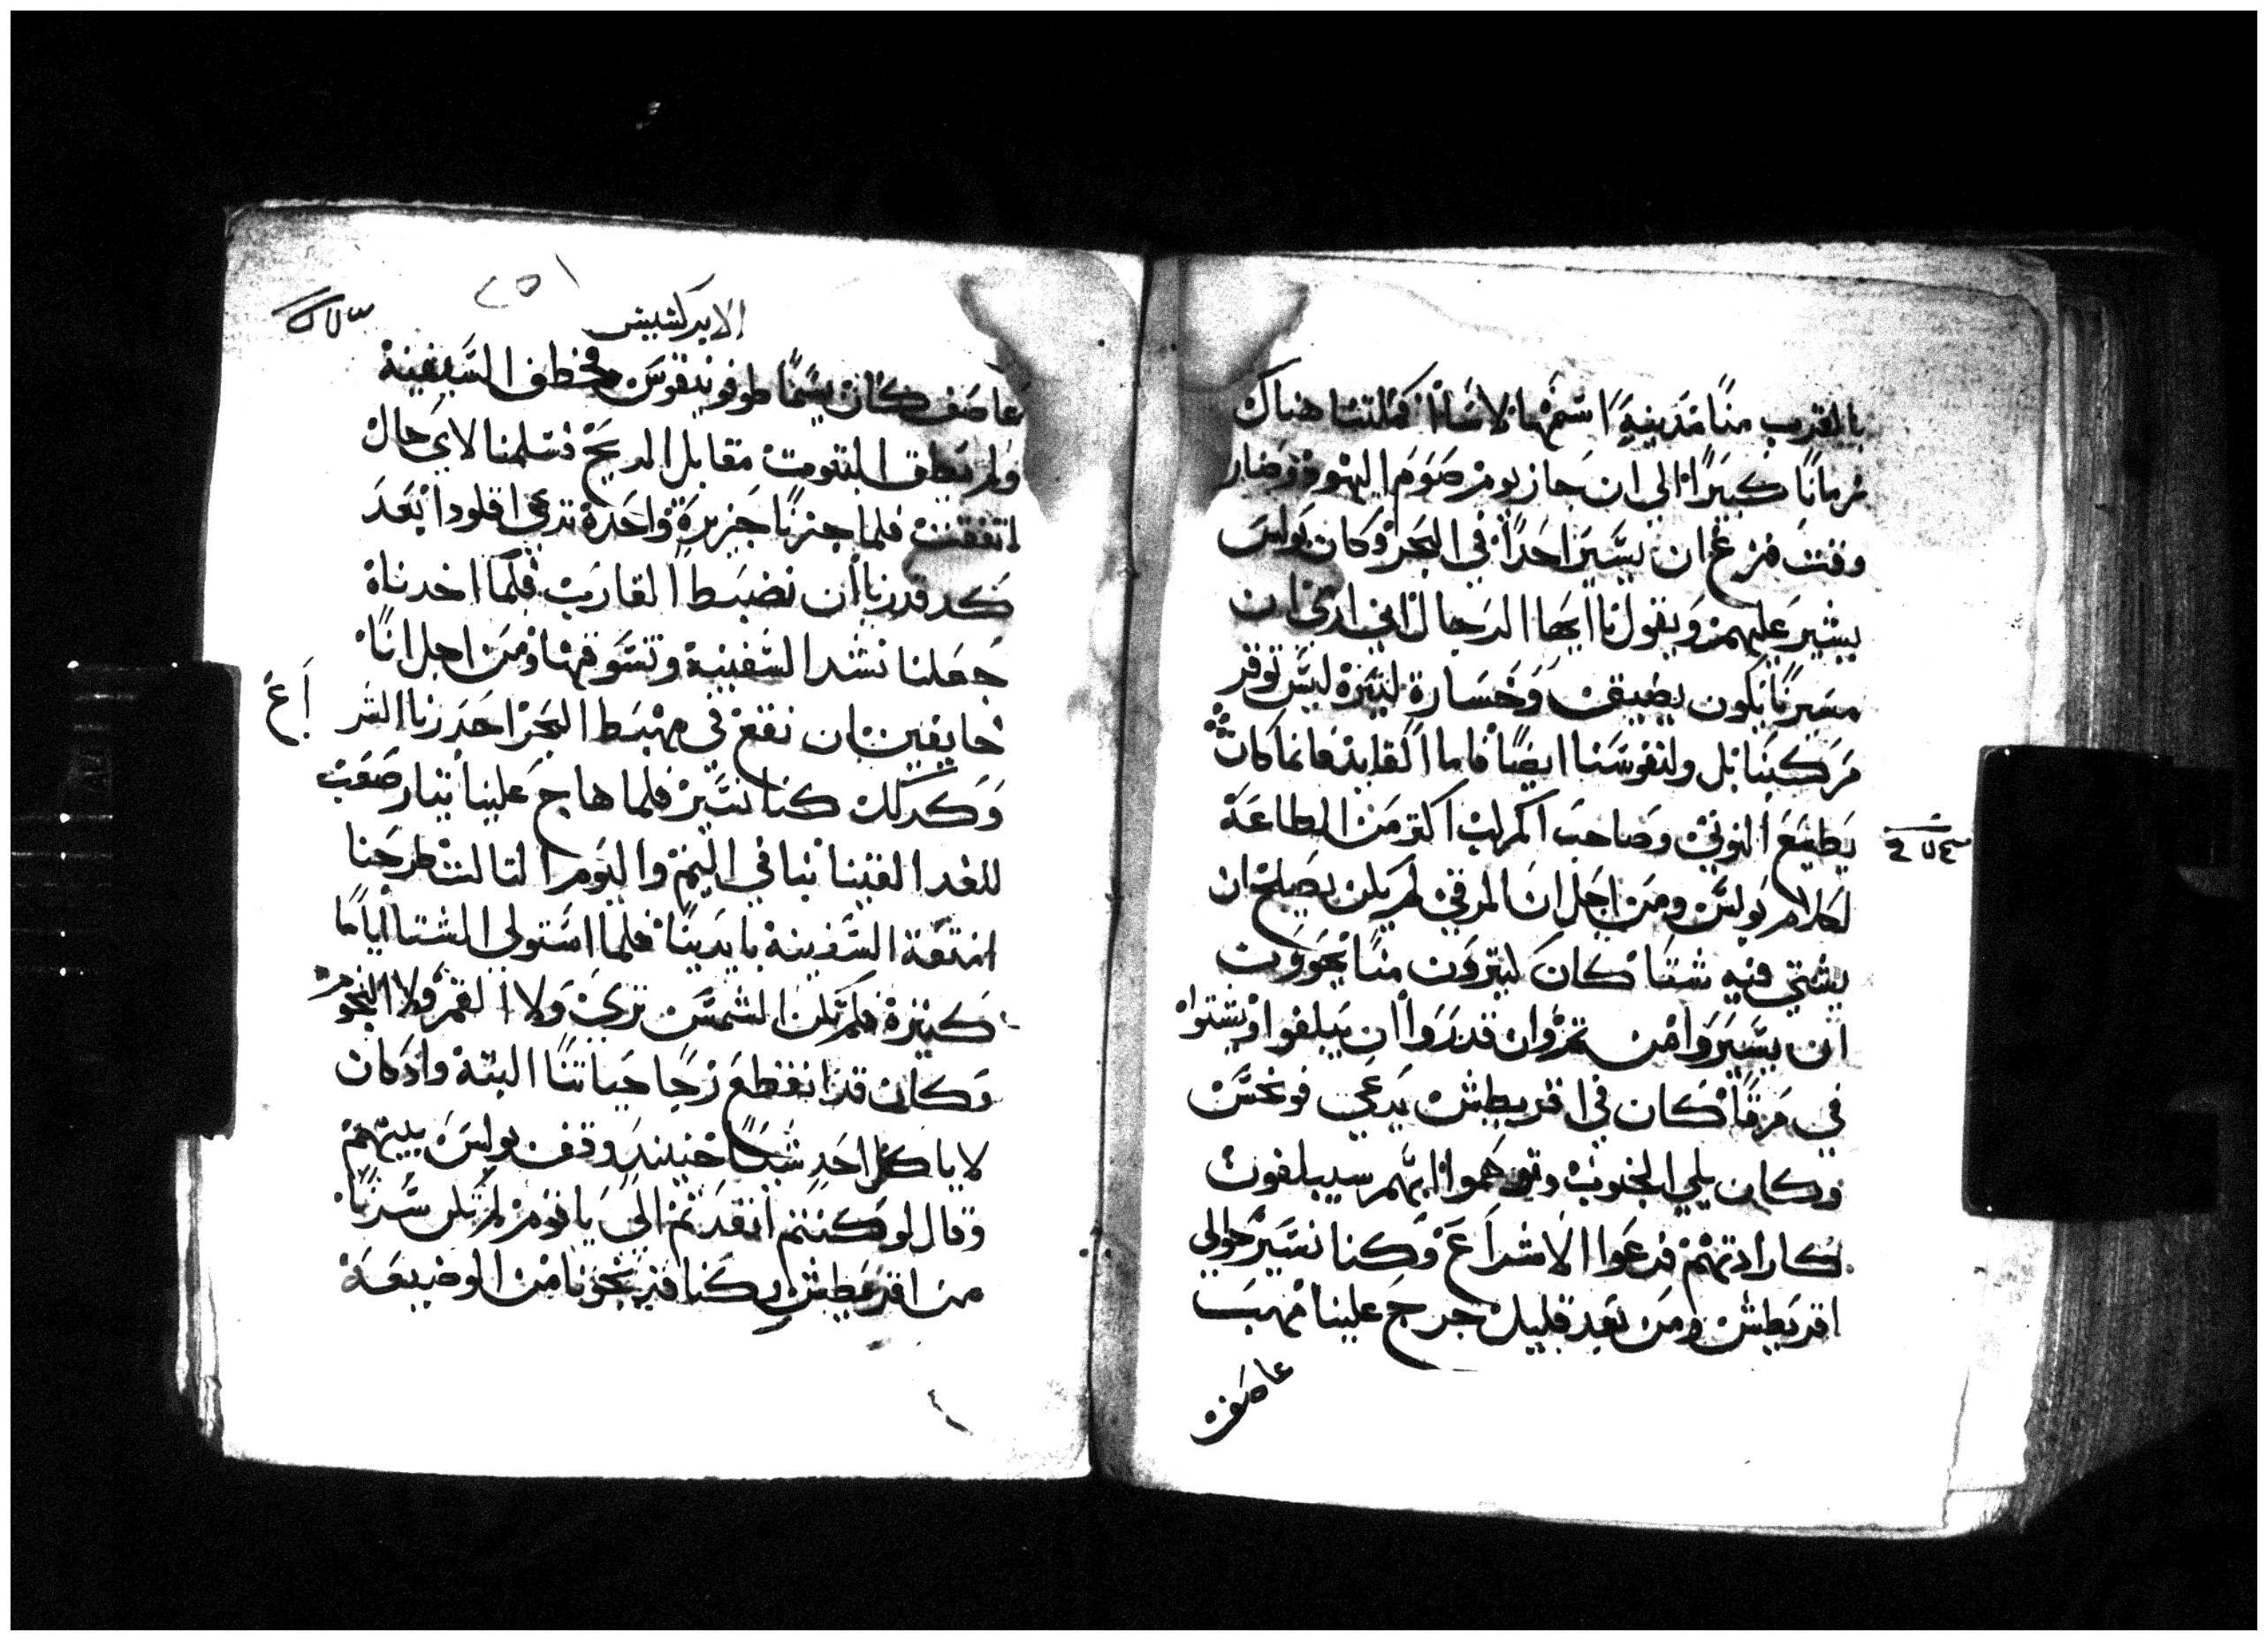 بالقرب منا مدينة اسمها لاسا فمكثنا هناك
زمانا كبيرا الي ان جاز يوم صوم اليهود وصار
وقت فزع ان يسير احدا في البحر وكان بولس
يشير عليهم ويقول يا ايها الرجال اني اري ان
مسيرنا يكون بضيق وخسارة ليس توقر
مركبنا بل ولنفوسنا ايضا فاما القايد فانما كان
يطيع النوتي وصاحب المركب اكتر من الطاعة
لكلام بولس ومن اجل ان المرقي لم يكن يصلح ان
يشتي فيه شتا كان كتيرون منا يحوون
ان يسيروا من تم وان قدروا ان يبلغوا ويشتوا
في مرقا كان في اقريطش يدعي فونخس
وكان يلي الجنوب وتوهموا انهم سيبلغون
كارادتهم فدعوا الاشراع وكنا نسير حوالي
اقريطش ومن بعد قليل خرج علينا مهب
عاصف
الابركسيس
عاصف كان يسما طوفونيقوس فخطف السفينة
ولم تطق التبوت مقابل الريح فسلمنا لاي حال
اتفقت فلما جزنا جزيرة واحدة تدعي اقلودا بعد
كد قدرنا ان نضبط القارب فلما اخدناه
جعلنا نشد السفينة وتسوقها ومن اجل انا
خايفين ان نقع في مهبط البحر احدرنا الشر
وكدلك كنا نسير فلما هاج علينا تيار صعب
للغد القينا تيابنا في اليم واليوم التالت طرحنا
امتعة السفينة بايدينا فلما استولي الشتا اياما
كتيرة فلم تكن الشمس تري ولا القمر ولا النجوم
وكان قد انقطع رجا حياتنا البتة واد كان
لا ياكل احد شيا حينيد وقف بولس بينهم
وقال لو كنتم انقدتم الي يا قوم لم تكن سرنا
من اقريطش وكنا قد نجونا من الوضيعة